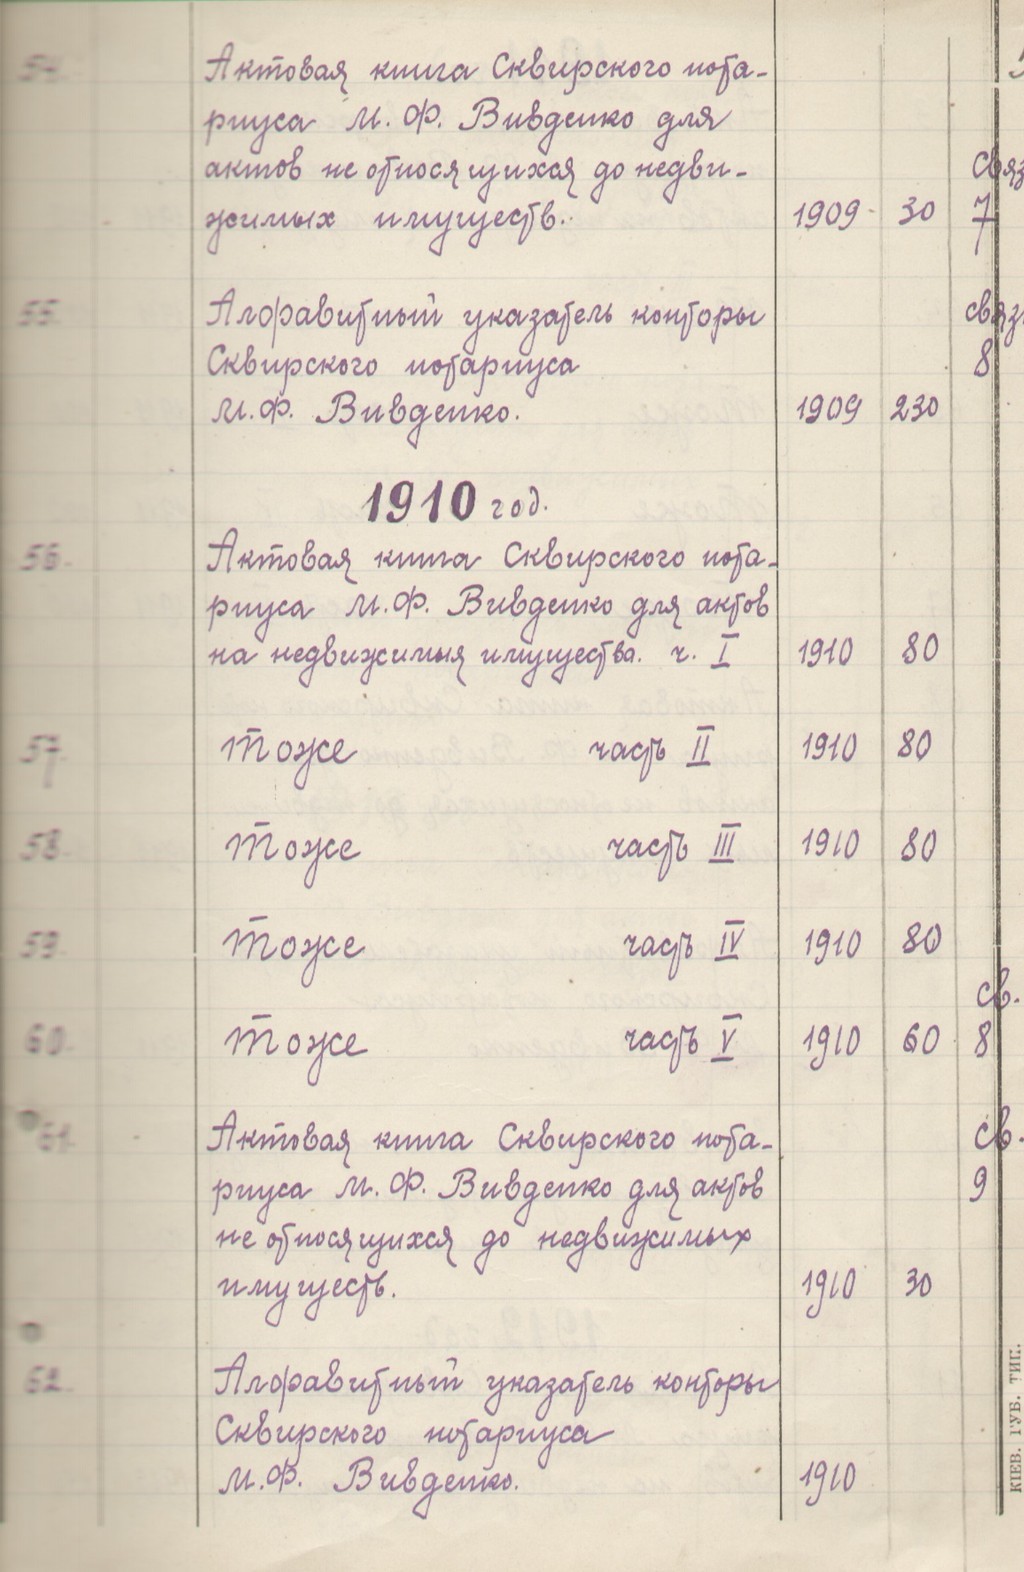 54. Актовая книга Сквирского нота-
риуса М. Ф. Вивденко для
актов не относящихся до недви- связ
жимых имуществ. 1909 30 7
55. Алфавитный указатель конторы связ.
Сквирского нотариуса 8
М. Ф. Вивденко. 1909 230
1910 год.
56. Актовая книга Сквирского нота-
риуса М. Ф. Вивденко для актов
на недвижимыя имущества. ч. I 1910 80
57. Тоже часть II 1910 80
58. Тоже часть III 1910 80
59. Тоже часть IV 1910 80
св.
60. Тоже часть V 1910 60 8
61. Актовая книга Сквирского нота- св.
риуса М. Ф. Вивденко для актов 9
не относящихся до недвижимых
имуществ. 1910 30
62. Алфавитный указатель конторы
Сквирского нотариуса
М. Ф. Вивденко. 1910
КІЕВ. ГУБ. ТИП.